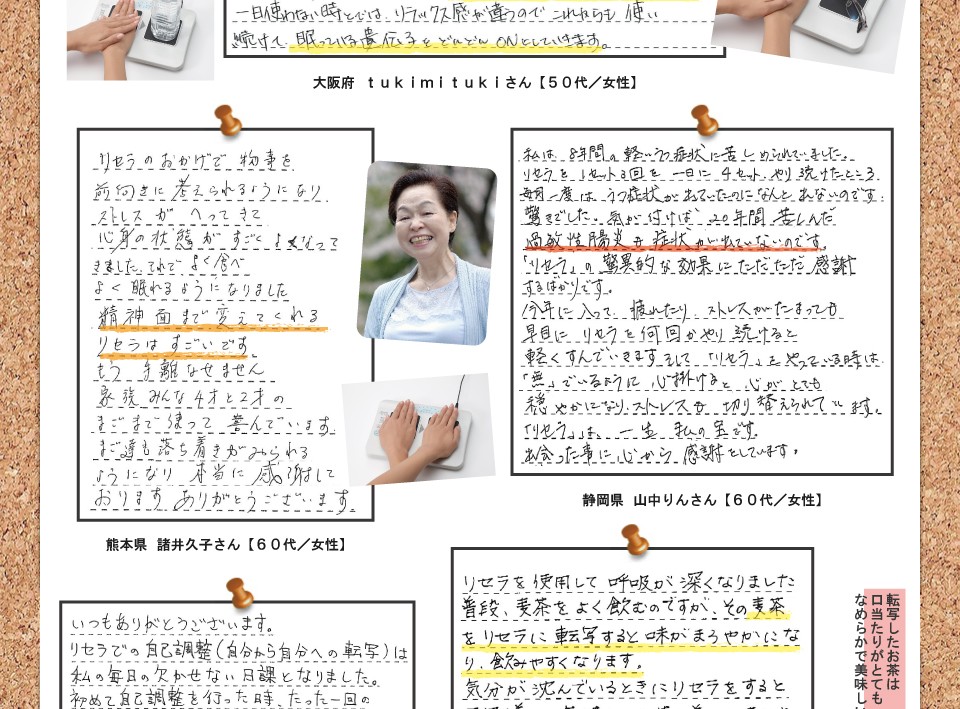 一日使わない時とでは、リラックス感が違うのでこれからも使い
続けて眠っている遺伝子をどんどんONとしていきます。
大阪府 ｔｕｋｉｍｉｔｕｋｉさん【５０代／女性】
リセラのおかげで物事を
前向きに考えられるようになり
ストレスがへってきて
心身の状態がすごくよくなって
きました。それでよく食べ
よく眠れるようになりました
精神面まで変えてくれる
リセラはすごいです。
もう手離なせません
家族みんな4才と2才の
まごまで使って喜んでいます。
まご達も落ち着きがみられる
ようになり本当に感謝して
おります ありがとうございます。
熊本県 諸井久子さん【６０代／女性】
私は、8年間の軽いうつ症状に苦しめられていました。
リセラを1セット3回を一日に4セットやり続けたところ、
毎月一度はうつ症状が出ていたのになんと出ないのです。
驚きでした。気が付けば、20年間苦しんだ
過敏性腸炎も症状が出ていないのです。
「リセラ」の驚異的な効果にただただ感謝
するばかりです。
今年に入って、疲れたり、ストレスがたまっても
早目にリセラを何回かやり続けると
軽くすんでいきますそして、「リセラ」をやっている時は、
「無」でいるように心掛けると心がとても
穏やかになり、ストレスも切り替えられています。
「リセラ」は、一生私の宝です。
出会った事に心から感謝しています。
静岡県 山中りんさん【６０代／女性】
いつもありがとうございます。
リセラでの自己調整(自分から自分への転写)は
私の毎日の欠かせない日課となりました。
初めて自己調整を行った時、たった一回の
リセラを使用して呼吸が深くなりました
普段、麦茶をよく飲むのですが、その麦茶
をリセラに転写すると味がまろやかにな
り、飲みやすくなります。
気分が沈んでいるときにリセラをすると
転写したお茶は
口当たりがとても
なめらかで美味し